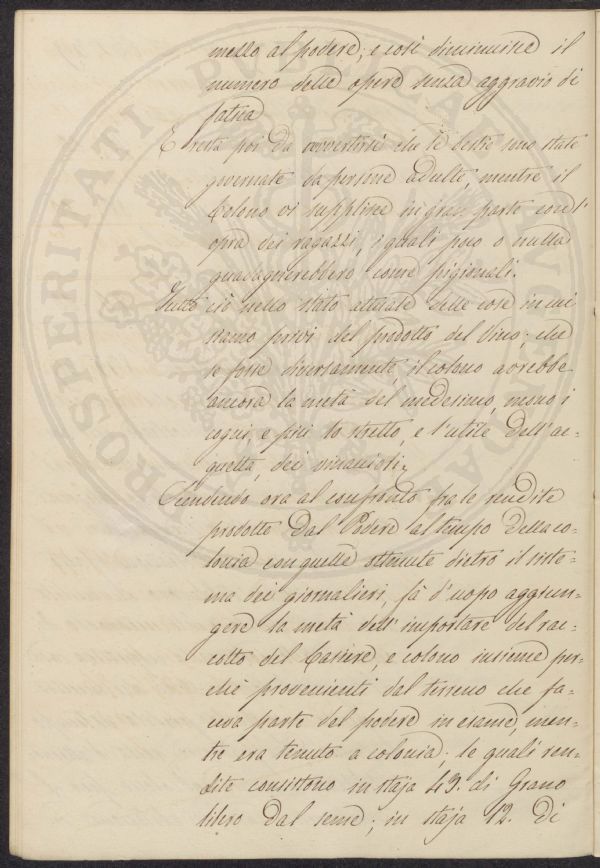 mezzo al podere; e così diminuisce il
numero delle opere senza aggravio di
fatica
E resta poi da avvertirsi che le bestie sono state
governate da persone adulte, mentre il
Colono vi supplisce in gran parte coll'
opra dei ragazzi, i quali poco o nulla
guadagnerebbero come pigionali.
Tutto ciò nello stato attuale delle cose in cui
siamo privi del prodotto del Vino; che
se fosse diversamente, il colono avrebbe
ancora la metà del medesimo, meno i
cogni, e più lo stretto, e l'utile dell'ac-
quetta, dei vinacioli;
Scendendo ora al confronto fra le rendite
prodotte dal Podere al tempo della co-
lonia con quelle ottenute dietro il siste-
ma dei giornalieri, fà d'uopo aggiun-
gere la metà dell'importare del rac-
colto del Cassiere, e colono insieme per-
chè provenienti dal terreno che fa-
ceva parte del podere in esame, men-
tre era tenuto a colonia; le quali ren-
dite consistono in staja 43. di Grano
libero dal seme; in staja 12. di
PROSPERITATI PUBLICAE